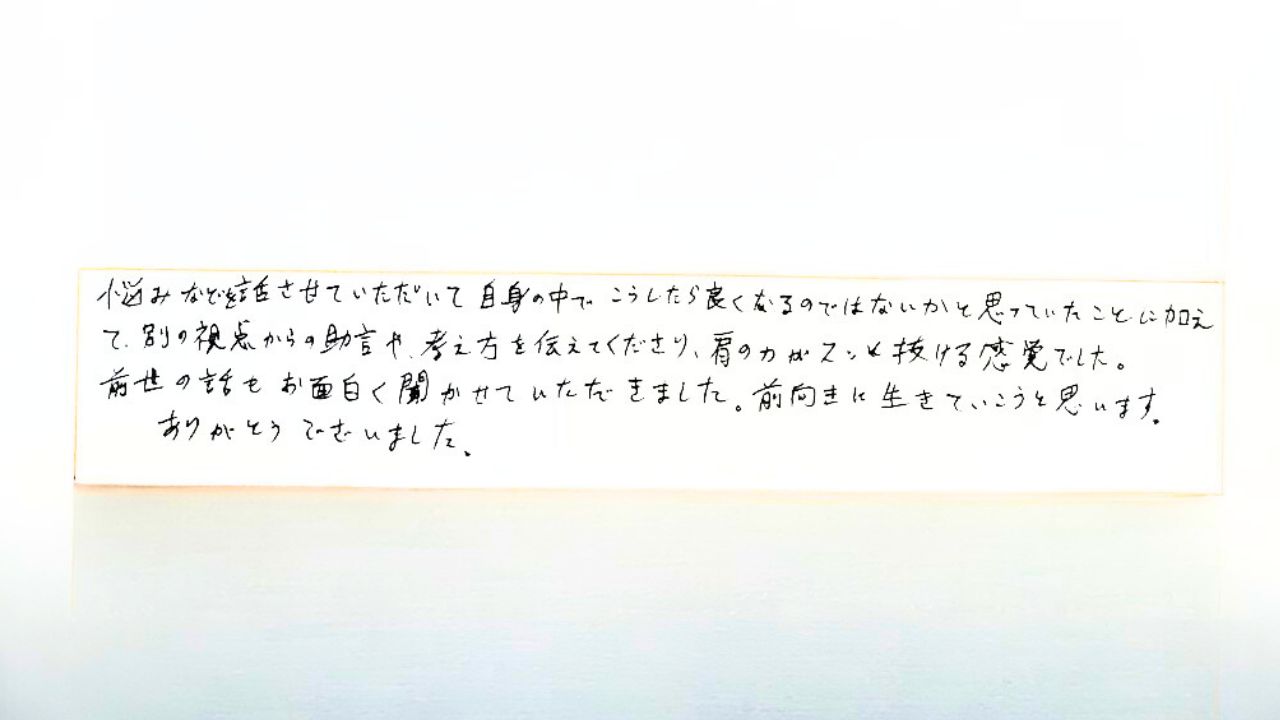 悩みなど話させていただいて自身の中でこうしたら良くなるのではないかと思っていたことに加え
て、別の視点からの助言や、考え方を伝えてくださり、肩の力がスッと抜ける感覚でした。
前世の話もお面白く聞かせていただきました。前向きに生きていこうと思います。
ありがとうございました。